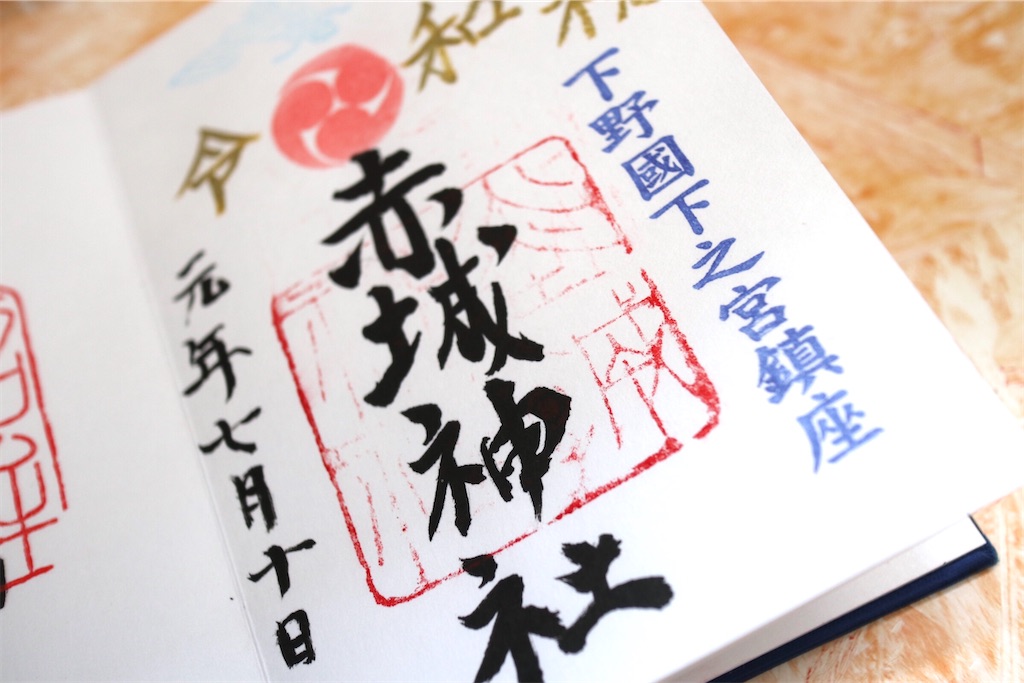 下野國下之宮鎮座
赤城神社
令
元年七月十日